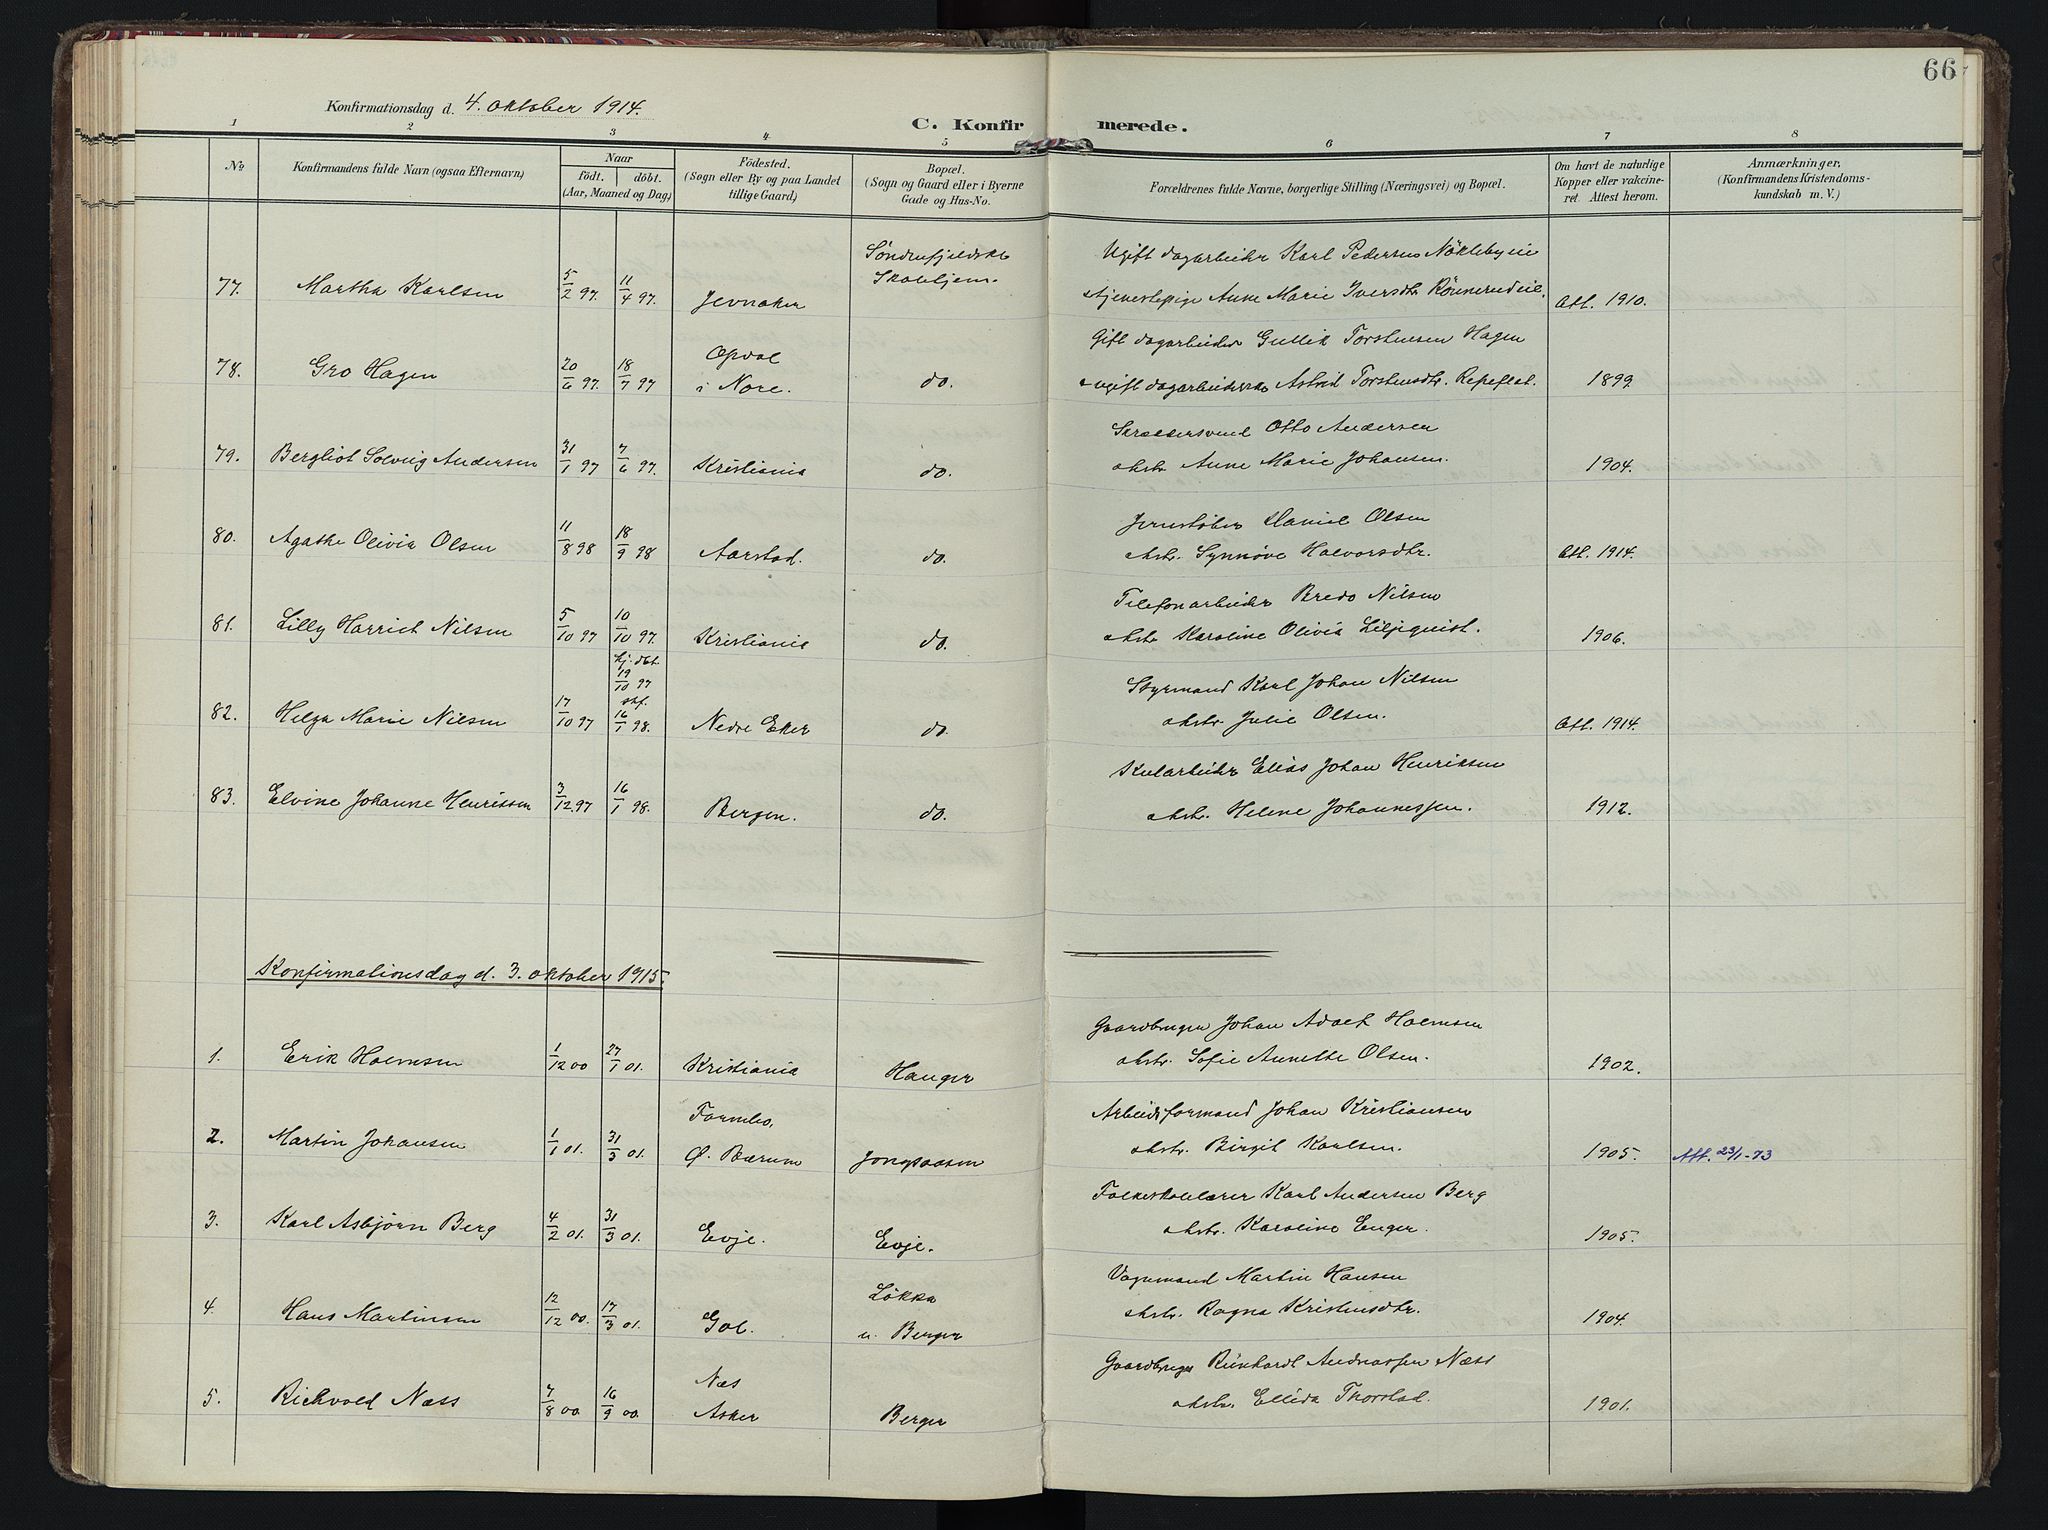 66
Konfirmationsdag d. 4. oktober 1914.
C. Konfirmerede.
1 2 3 4 5 6 7 8
No. Konfirmandens fulde Navn (ogsaa Efternavn)
Naar födt. döbt. (Aar, Maaned og Dag)
Födested. (Sogn eller By og paa Landet tillige Gaard)
Bopæl. (Sogn og Gaard eller i Byerne Gade og Hus-No.
Forældrenes fulde Navne, borgerlige Stilling (Næringsvei) og Bopæl.
Om havt de naturlige Kopper eller vakcineret. Attest herom.
Anmærkninger, (Konfirmandens Kristendomskundskab m. V.)
Søndenfjeldske Ugift dagarbeider Karl Pedersen Nöklebyeie
77. Martha Karlsen 5/2 97. 11/4 97. Jevnaker Skolehjem. tjenestepige Anne Marie Iversdtr. Rönnerudeie. Att. 1910.
Opdal Gift dagarbeider Gullik Torstensen Hagen
78. Gro Hagen 20/6 97. 18/7 97 i Nore. do. ugift dagarbeiderske Astrid Torstensdtr. 1899.
Skræddersvend Otto Andersen
79. Bergliot Solveig Andersen 31/1 97 7/6 97. Kristiania do. ohstr. Anne Marie Johansen. 1904.
Jernstøber Daniel Olsen
80. Agathe Olivia Olsen 11/8 98 18/9 98 Aarstad. do. ohstr. Synnöve Halvorsdtr. Att. 1914.
Telefonarbeider Bredo Nilsen
81. Lilly Harriet Nilsen 5/10 97 10/10 97. Kristiania do. ohstr. Karoline Olivia Liljequist. 1906.
hj. dbt. 19/10 97 Styrmand Karl Johan Nilsen
82. Helga Marie Nilsen 17/10 97 stf. 16/1 98. Nedre Eker do. ohstr. Julie Olsen. Att. 1914.
Kularbeider Elias Johan Henriksen
83. Elvine Johanne Henriksen 3/12 97 16/1 98. Bergen. do. ohstr. Helene Johannessen. 1912.
Konfirmationsdag d. 3. oktober 1915.
Gaardbruger Johan Adolf Holmsen
1. Erik Holmsen 1/12 00 27/1 01. Kristiania Hauger ohstr. Sofie Annette Olsen. 1902.
Fornebo, Arbeidsformand Johan Kristiansen
2. Martin Johansen 1/1 01. 31/3 01. Ø. Bærum Jongsaasen ohstr. Birgit Karlsen. 1905. Att. 23/1-73
Folkeskolelærer Karl Andersen Berg
3. Karl Asbjørn Berg 4/2 01. 31/3 01. Evje. Evje. ohstr. Karoline Enger. 1905.
Løkka Vognmand Martin Hansen
4. Hans Martinsen 12/12 00. 17/3 01. Gol. u. Berger ohstr. Ragna Kristensdtr. 1904.
Næs Gaardbruger Reinhardt Andreassen Næss
5. Richvold Næss 7/8 00. 16/9 00. Asker Berger ohstr. Ellida Thorstad. 1901.